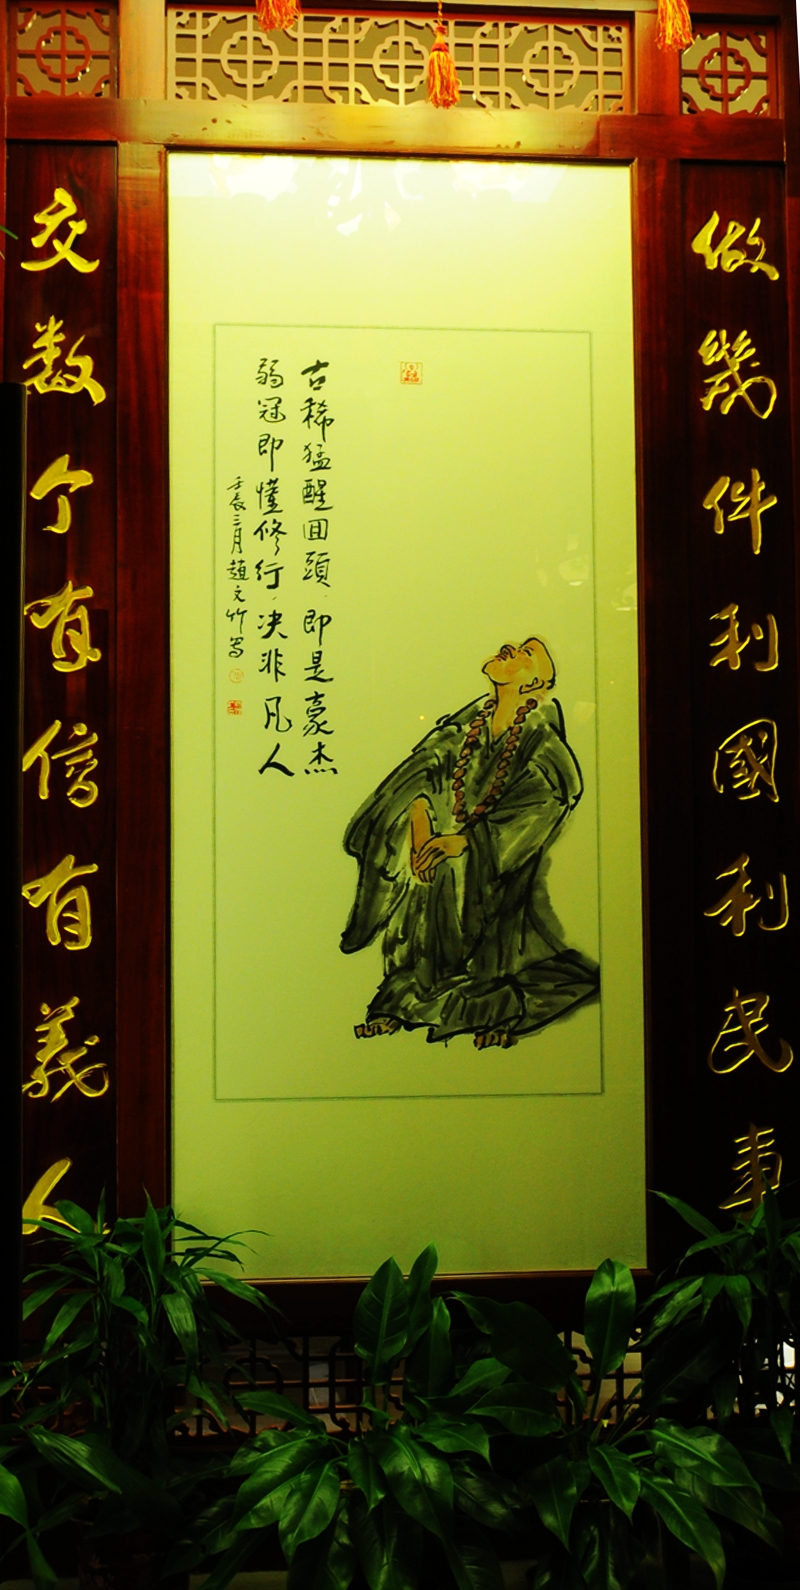 做幾件利國利民事
古稀猛醒回頭即是豪杰
弱冠即懂修行决非凡人
壬辰三月趙文竹写
交数个有信有義人